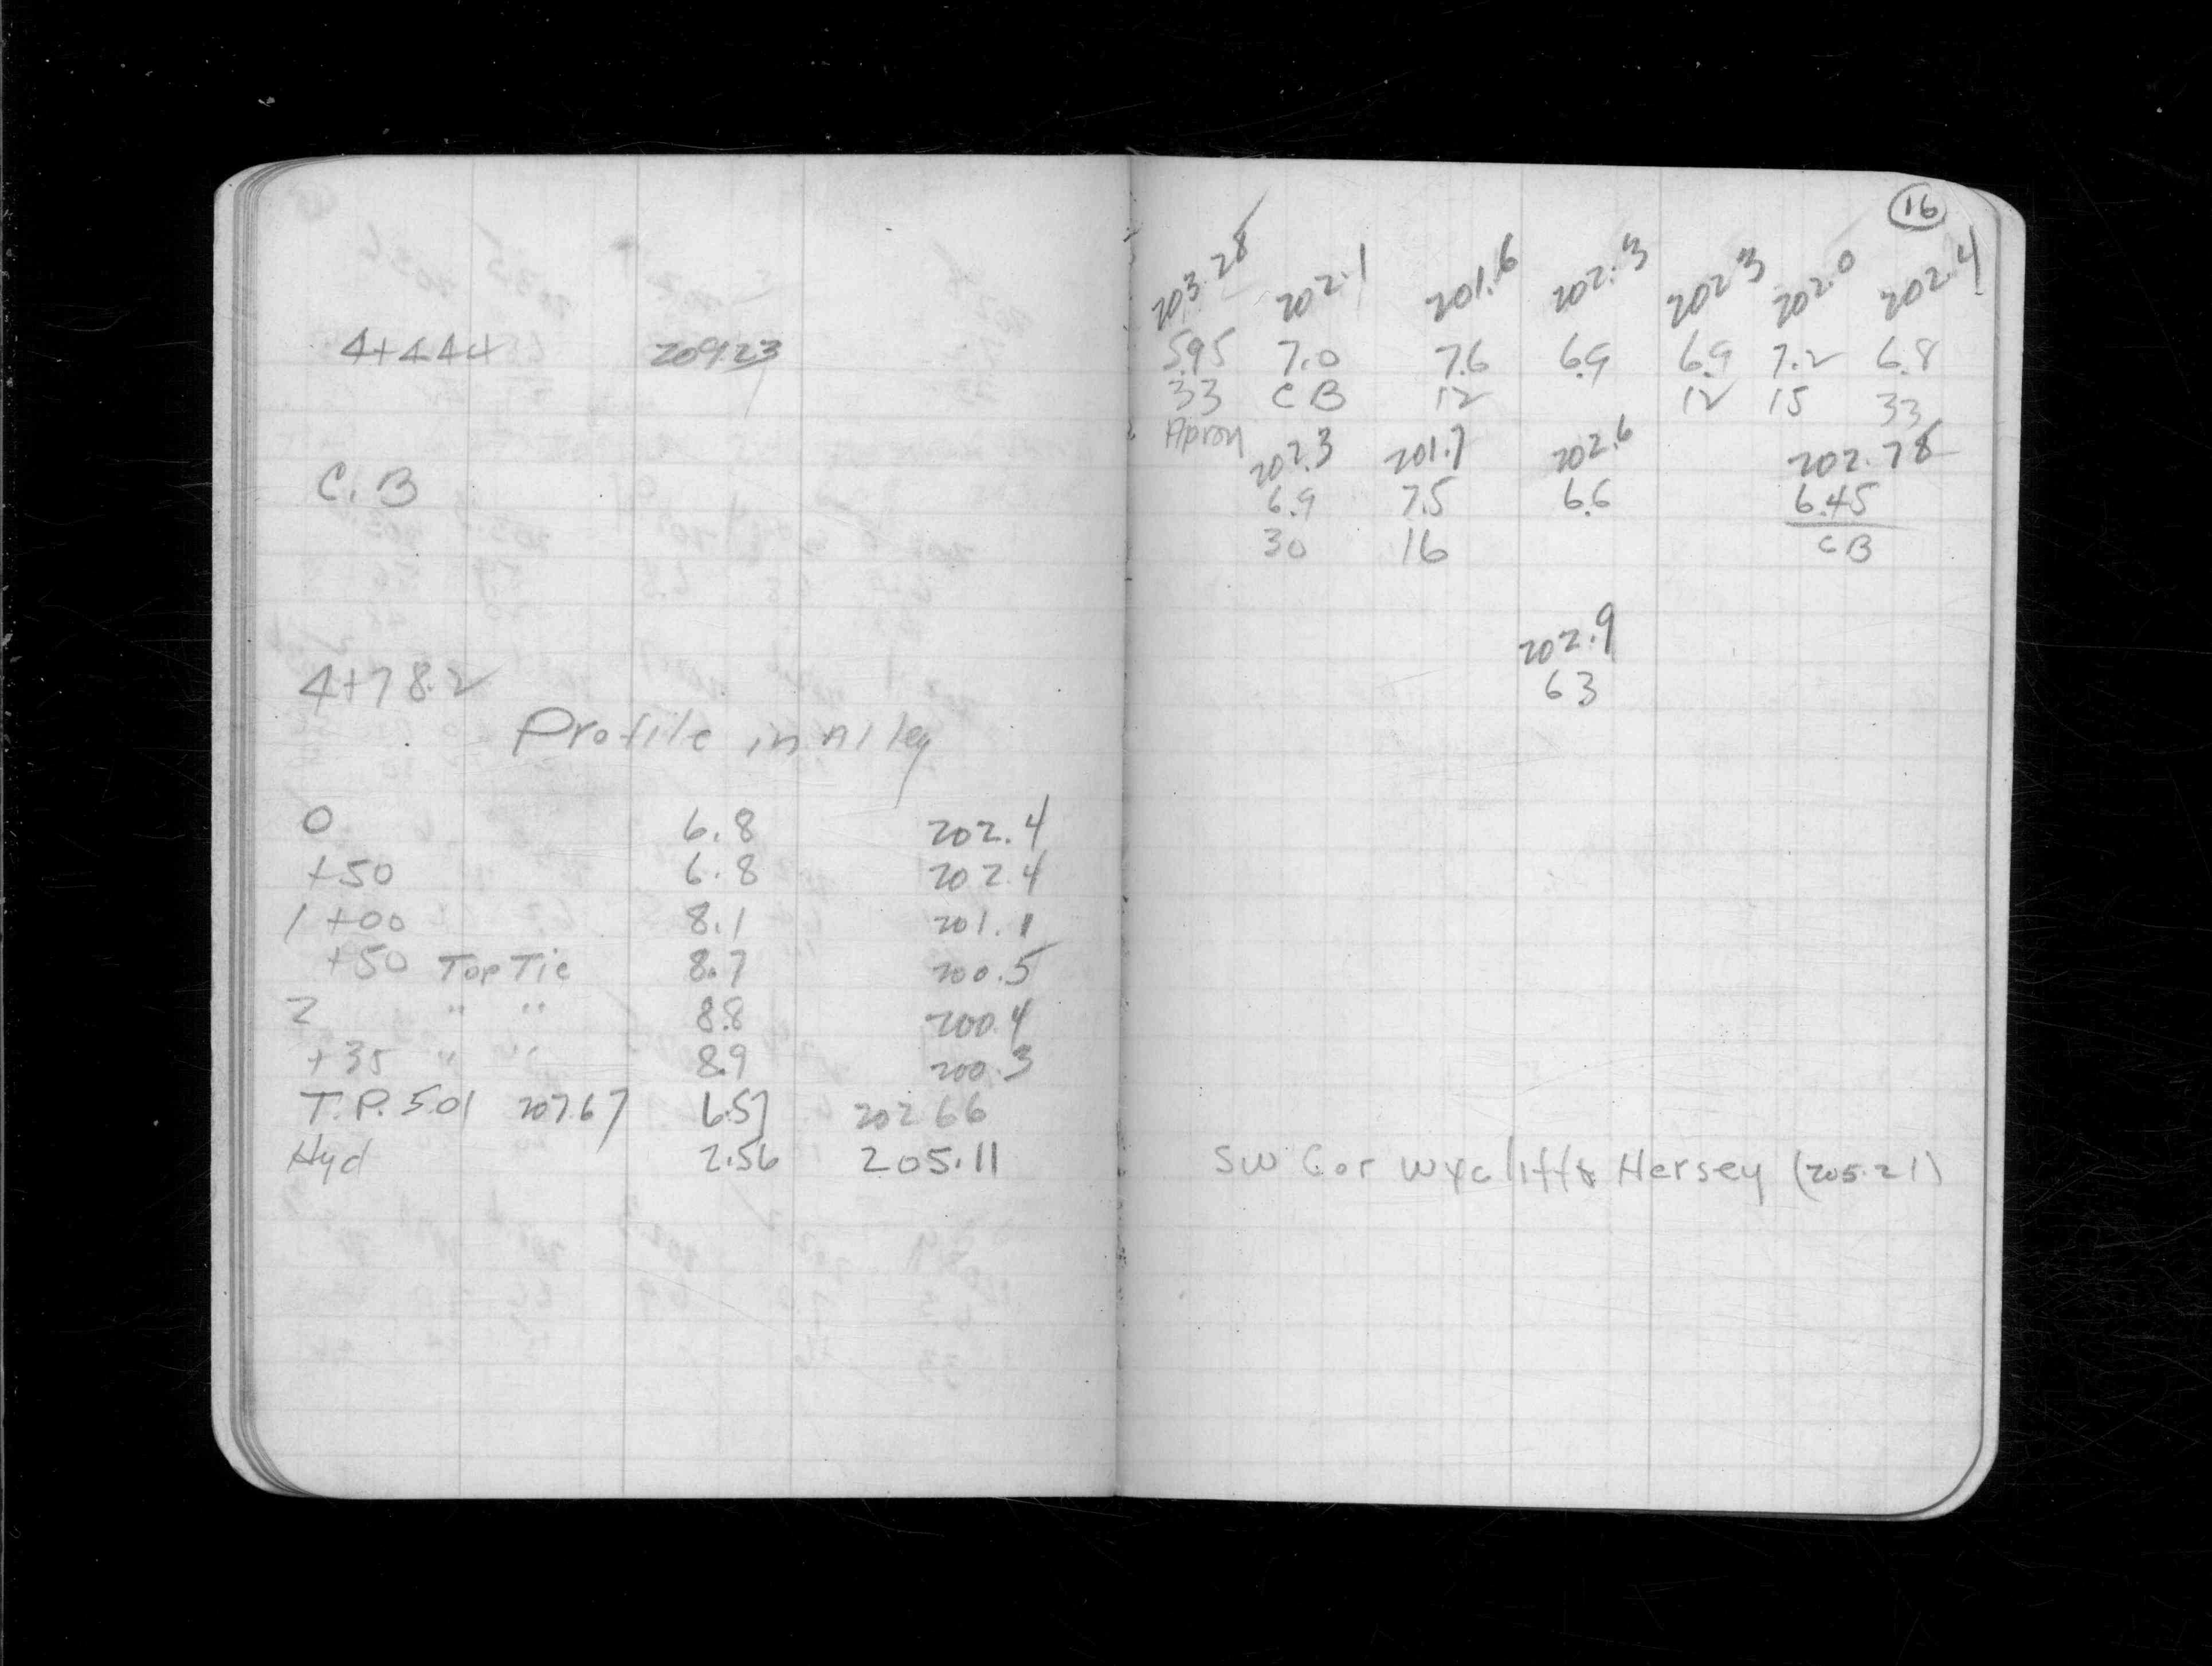 4+44.4 209.23
C.B
4+78.2
Profile in Alley
0 6.8 202.4
+50 6.8 202.4
1+00 8.1 201.1
+50 Top Tie 8.7 200.5
2 " " 8.8 200.4
+35 " " 8.9 200.3
T.P. 5.01 207.67 6.57 202.66
Hyd 2.56 205.11
16
203.28 202.1 201.6 202.3 202.3 202.0 202.4
5.95 7.0 7.6 6.9 6.9 7.2 6.8
33 CB 12 12 15 33
Apron
202.3 201.7 202.6 202.78
6.9 7.5 6.6 6.45
30 16 CB
202.9
6 3
SW Cor Wycliff & Hersey (205.21)